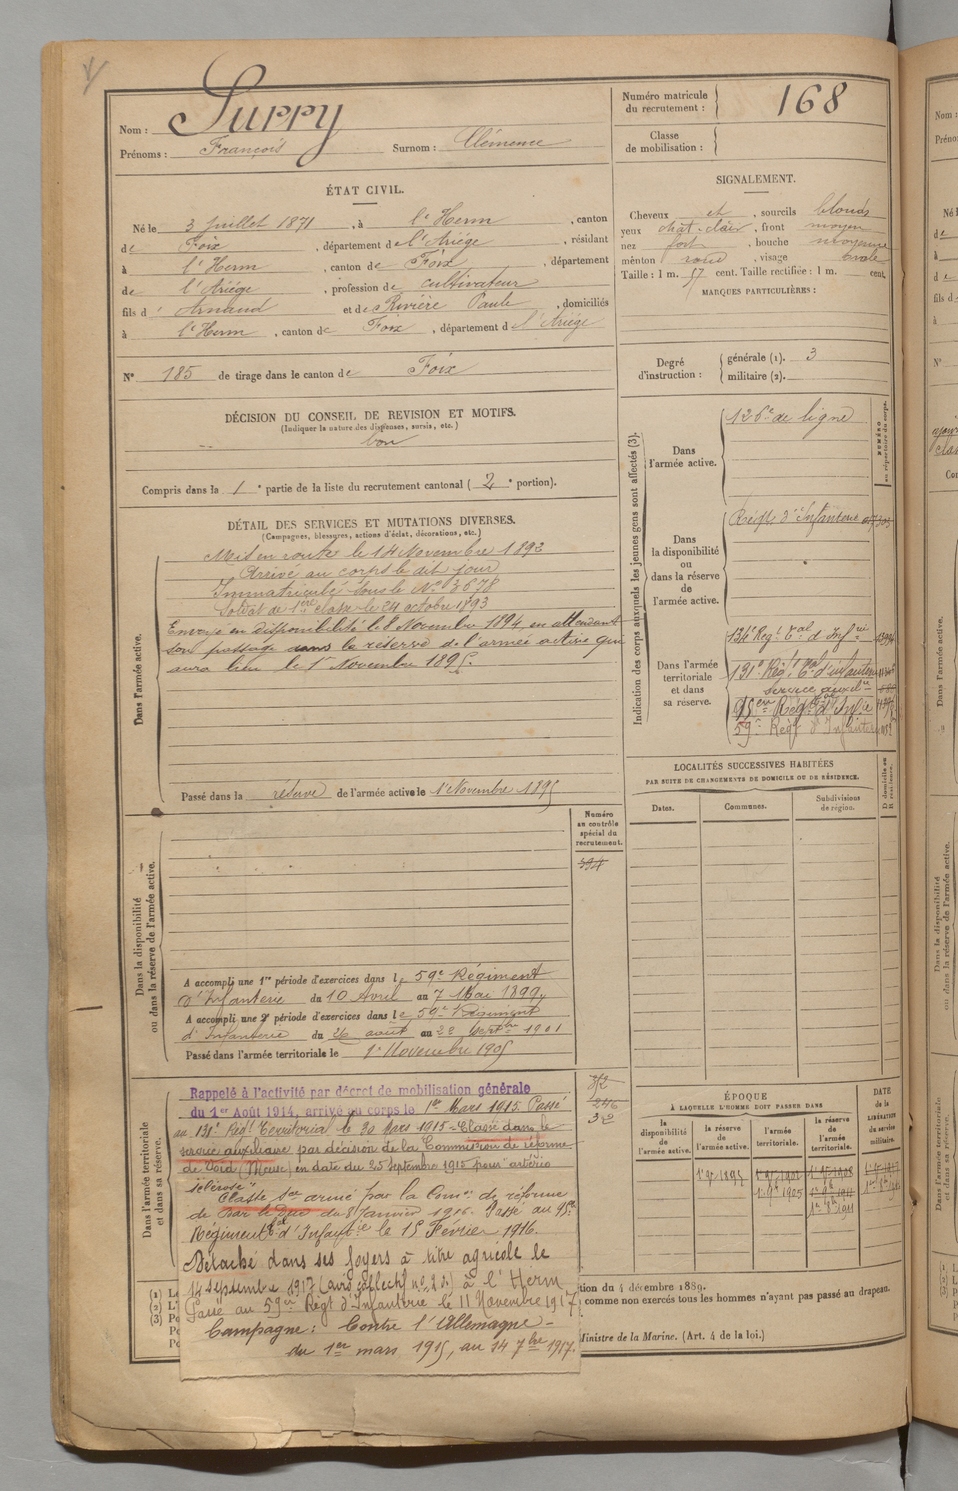 Nom : Surry
Prénoms : François Surnom : Clémence
Numéro matricule du recrutement : 168
Classe de mobilisation :
ÉTAT CIVIL.
Né le 3 Juillet 1871, à l'Herm, canton
de Foix, département de l'Ariége, résidant
à l'Herm, canton de Foix, département
de l'Ariége, profession de cultivateur
fils d' Arnaud et de Rivière Paule, domiciliés
à l'Herm, canton de Foix, département d l'Ariége
N° 185 de tirage dans le canton de Foix
SIGNALEMENT.
Cheveux et, sourcils blonds
yeux chat. clair, front moyen
nez fort, bouche moyenne
menton rond, visage ovale
Taille : 1 m. 57 cent. Taille rectifiée : 1 m. cent.
MARQUES PARTICULIÈRES :
Degré d'instruction : générale (1). 3
militaire (2).
DÉCISION DU CONSEIL DE REVISION ET MOTIFS.
(Indiquer la nature des dispenses, sursis, etc.)
bon
Compris dans la 1e partie de la liste du recrutement cantonal ( 2e portion).
DÉTAIL DES SERVICES ET MUTATIONS DIVERSES.
(Campagnes, blessures, actions d'éclat, décorations, etc.)
Dans l'armée active.
Mis en route le 14 Novembre 1892
Arrivé au corps le dit jour
Immatriculé sous le N° 3678
Soldat de 1ère classe le 24 octobre 1893
Envoyé en disponibilité le 8 Novembre 1894 en attendant
son passage dans la réserve de l'armée active qui
aura lieu le 1er Novembre 1895.
Passé dans la réserve de l'armée active le 1er Novembre 1895
Indication des corps auxquels les jeunes gens sont affectés (3).
NUMÉRO au répertoire du corps.
Dans l'armée active.
126e de ligne
Dans la disponibilité ou dans la réserve de l'armée active.
Régt d'Infanterie
Dans l'armée territoriale et dans sa réserve.
134e Régt Tal d'Infrie
131e Régt Tal d'infanterie
service auxil
95eme Régt d'Infie
59e Régt d'Infanterie
LOCALITÉS SUCCESSIVES HABITÉES
PAR SUITE DE CHANGEMENTS DE DOMICILE OU DE RÉSIDENCE.
Dates. Communes. Subdivisions de région. D domicile ou R résidence.
Dans la disponibilité ou dans la réserve de l'armée active.
Numéro au contrôle spécial du recrutement.
394
A accompli une 1re période d'exercices dans le 59e Régiment
d'Infanterie du 10 Avril au 7 Mai 1899,
A accompli une 2e période d'exercices dans le 59e Régiment
d'Infanterie du 26 août au 22 Septbre 1901
Passé dans l'armée territoriale le 1er Novembre 1905
Dans l'armée territoriale et dans sa réserve.
Rappelé à l'activité par décret de mobilisation générale
du 1er Août 1914, arrivé au corps le 1er Mars 1915. Passé
au 131e Régt Territorial le 30 Mars 1915 - Classé dans le
service auxiliaire par décision de la Commission de réforme
(Meuse) en date du 25 Septembre 1915 pour "artério
sclérose"
Classé Sce armé par la Comon de réforme
de Bar le Duc du 8 Janvier 1916. Passé au 95e
Régiment Tal d'Infanterie le 15 Février 1916.
Détaché dans ses foyers à titre agricole le
14 septembre 1917 (avis collectif à l'Herm
Passé au 59eme Régt d'Infanterie le 11 Novembre 1917
Campagne : Contre l'Allemagne -
du 1er mars 1915, au 14 7bre 1917.
ÉPOQUE
À LAQUELLE L'HOMME DOIT PASSER DANS
la disponibilité de l'armée active. la réserve de l'armée active. l'armée territoriale. la réserve de l'armée territoriale. DATE de la LIBÉRATION du service militaire.
1er 9bre 1895
1er 9bre 1905
tion du 4 décembre 1889.
comme non exercés tous les hommes n'ayant pas passé au drapeau.
Ministre de la Marine. (Art. 4 de la loi.)